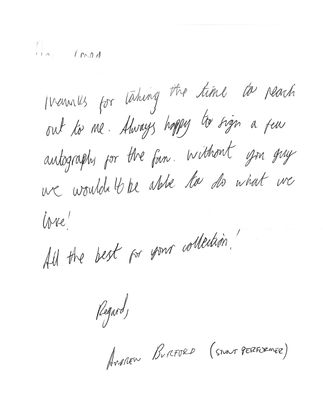 Thanks for taking the time to reach
out to me. Always happy to sign a few
autographs for the fan. Without you guy
we wouldn't be able to do what we
love!
All the best for your collection!
Regard,
ANDREW BURFORD (STUNT PERFORMER)